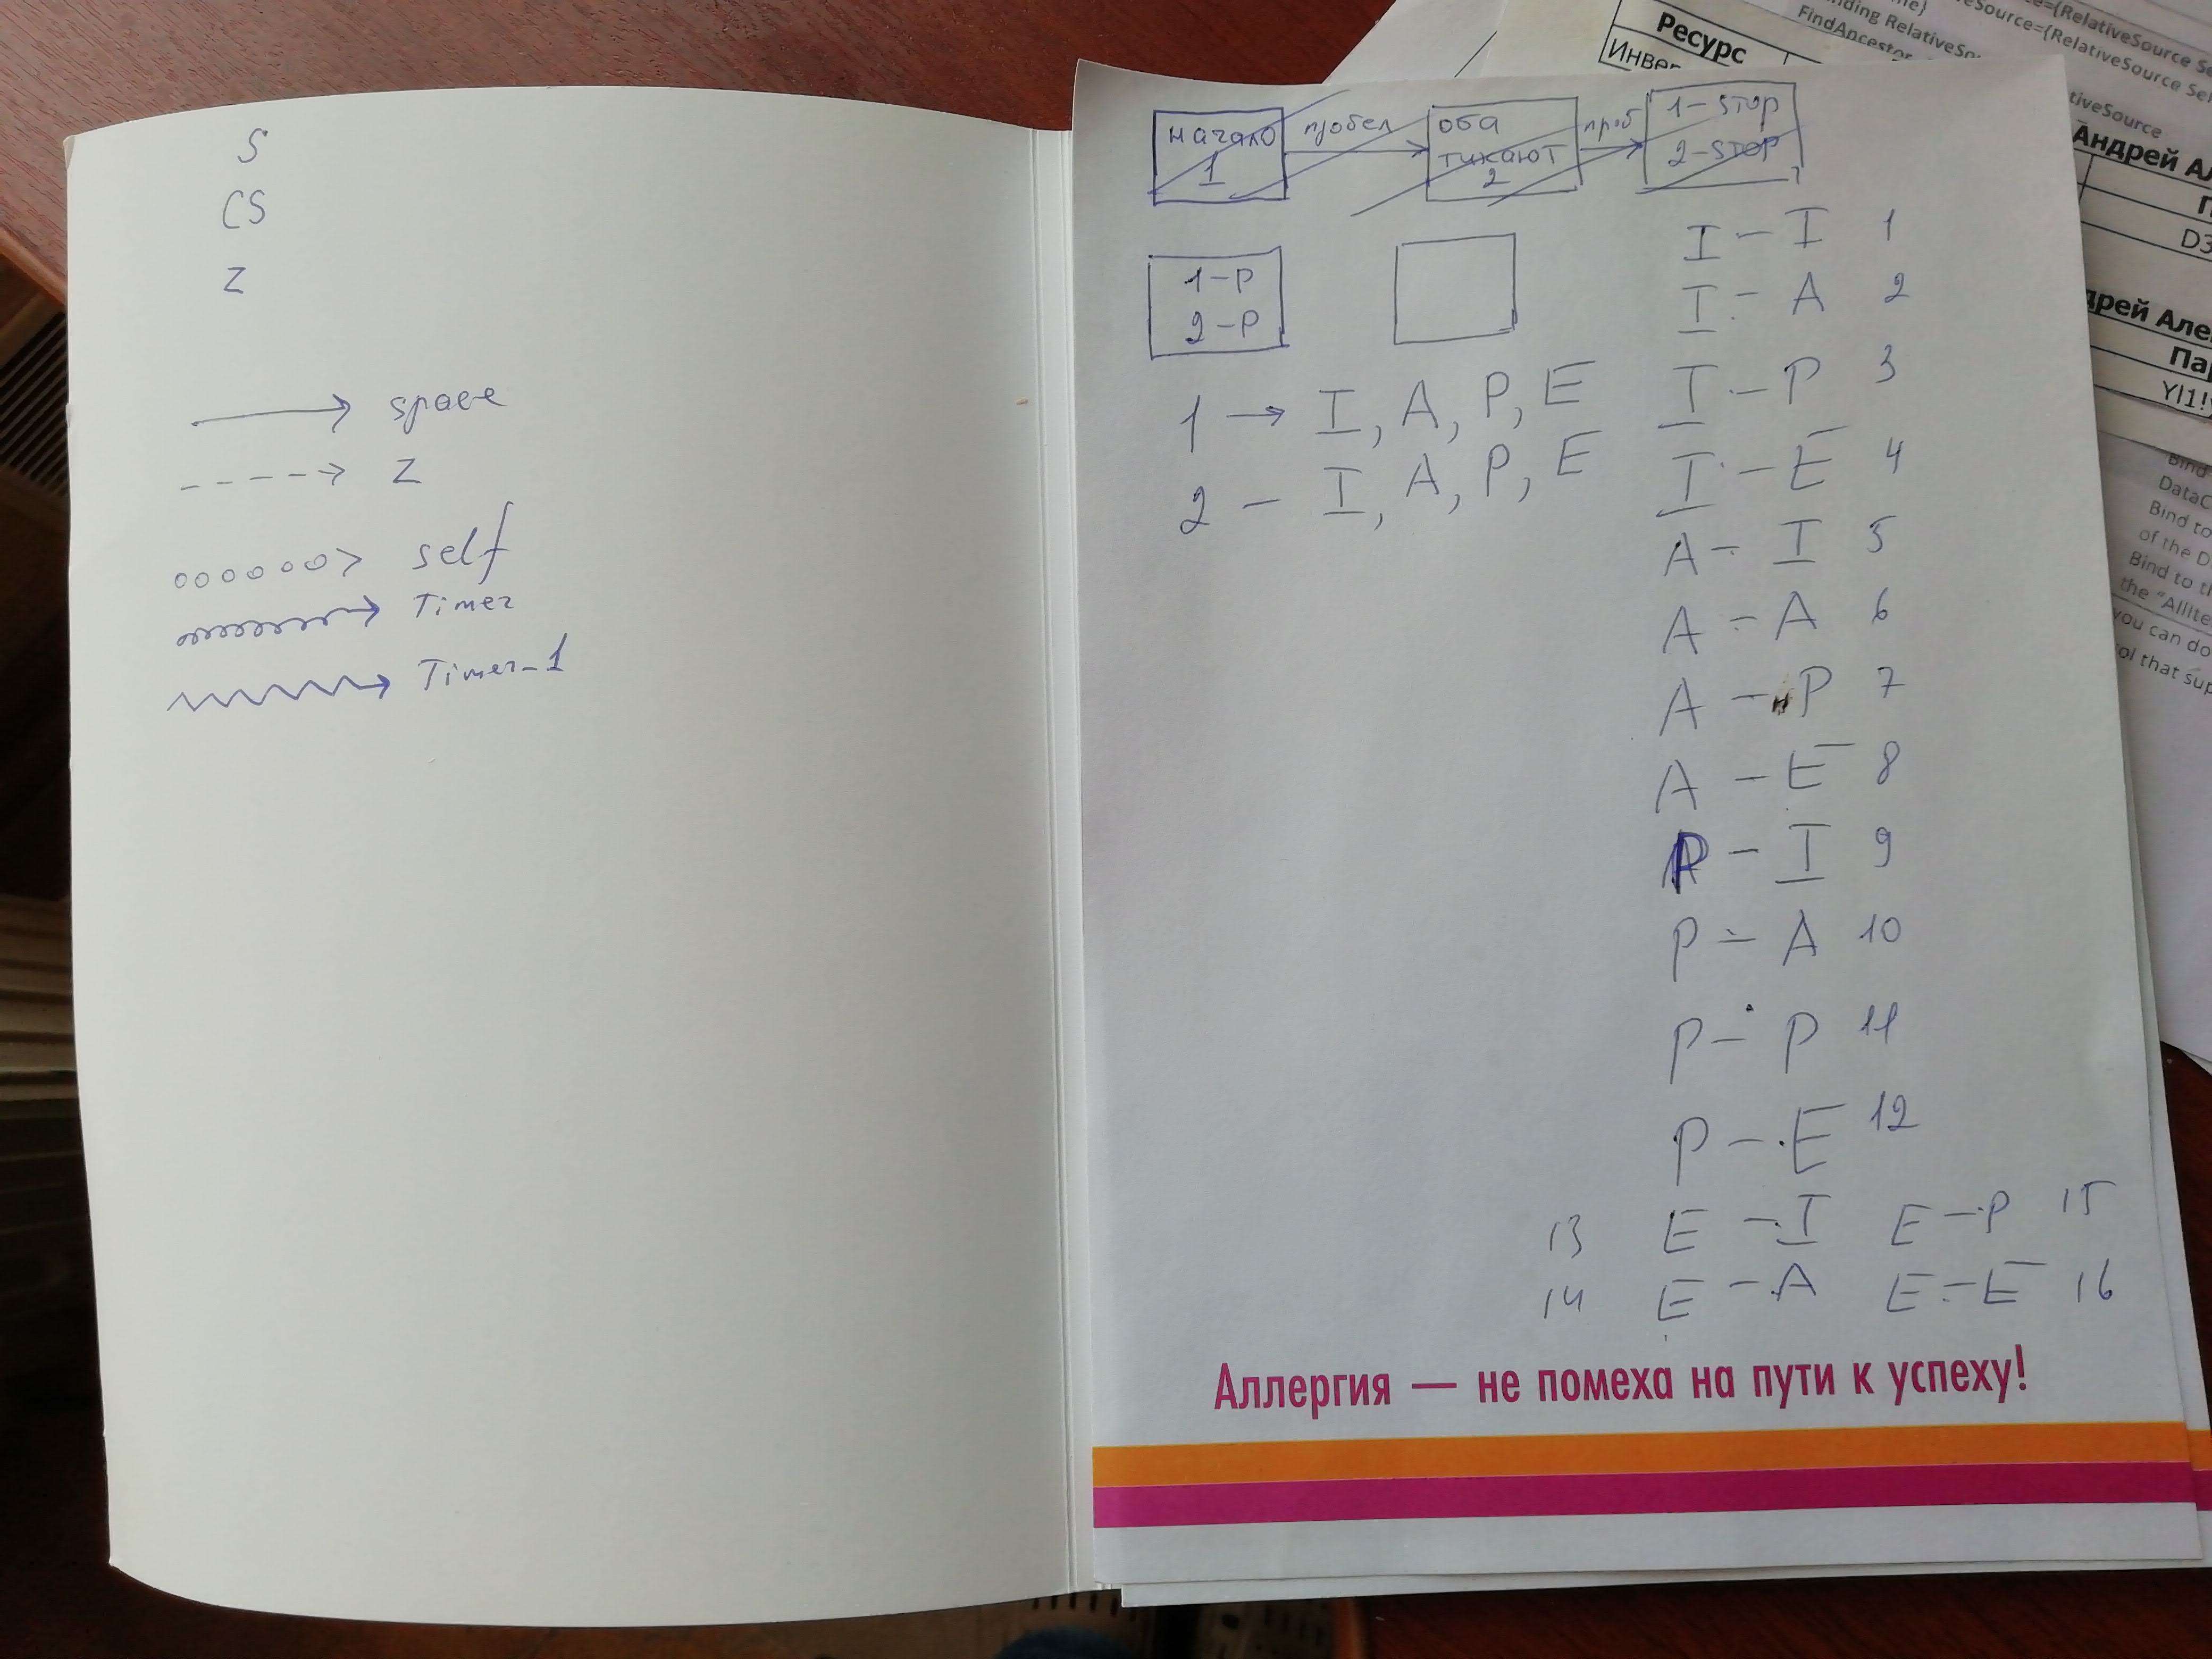 S
CS
Z
space
Z
self
Timer
Timer_1
начало
1
пробел
оба
тикают
2
проб
1-STOP
2-STOP
1-P
2-P
1 → I, A, P, E
2 - I, A, P, E
I - I 1
I - A 2
I - P 3
I - E 4
A - I 5
A - A 6
A - P 7
A - E 8
P - I 9
P - A 10
P - P 11
P - E 12
13 E - I E - P 15
14 E - A E - E 16
Аллергия — не помеха на пути к успеху!
Ресурс
FindAncestor
tiveSource
Андрей Ал
D3
дрей Але
Па
Bind
DataC
Bind to
of the D
Bind to th
the "AllIte
you can do
ol that sup